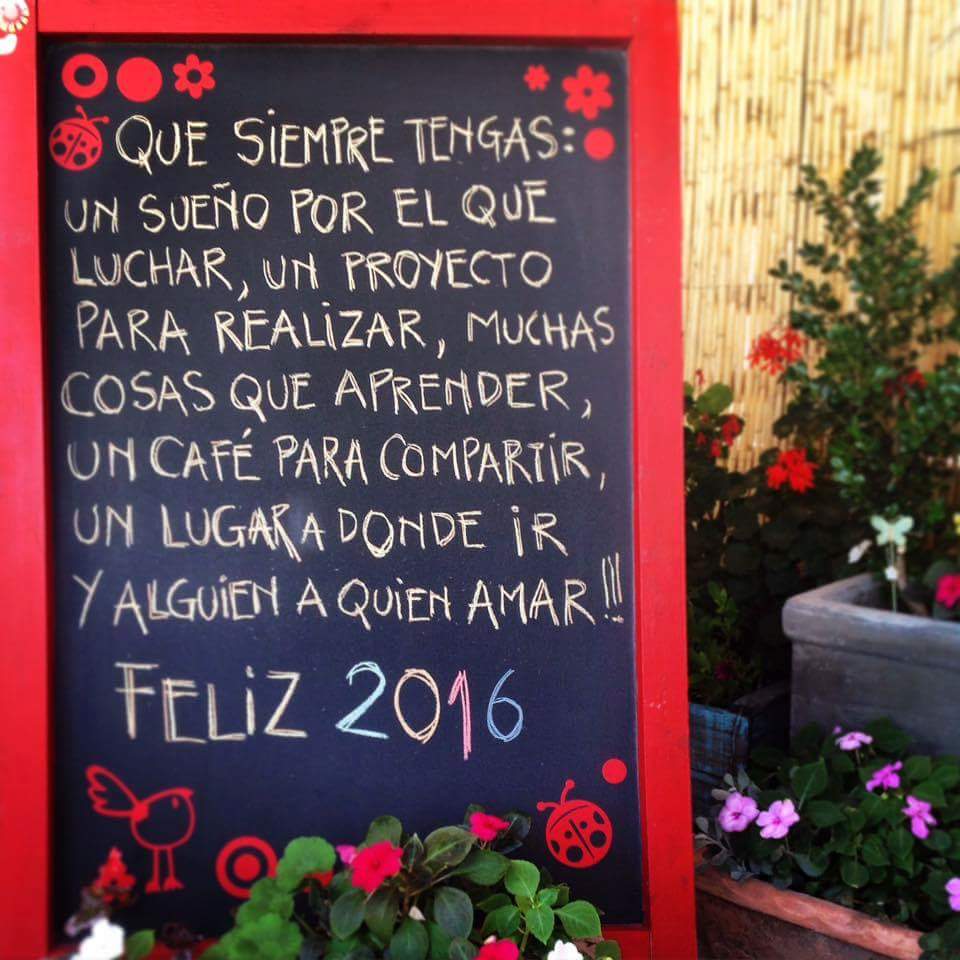 QUE SIEMPRE TENGAS:
UN SUEÑO POR EL QUE
LUCHAR, UN PROYECTO
PARA REALIZAR, MUCHAS
COSAS QUE APRENDER,
UN CAFÉ PARA COMPARTIR,
UN LUGAR A DONDE IR
Y ALGUIEN A QUIEN AMAR!!!
FELIZ 2016